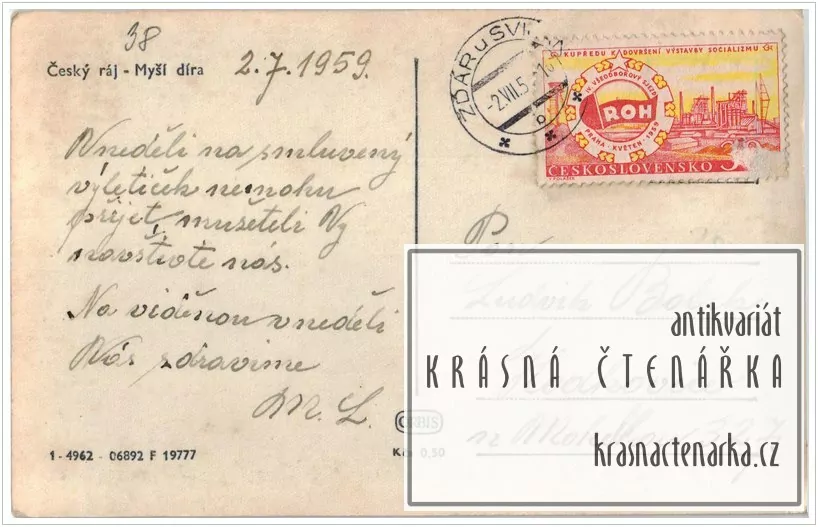 38
Český ráj - Myší díra
2.7.1959.
V neděli na smluvený
výletíček nemohu
přijet, mušeteli Vy
navštivte nás.
Na viděnou v neděli
Vás zdravíme
M. L.
1 - 4962 - 06892 F 19777
ORBIS
Kčs 0,50
ŽĎÁR u SV
-2.VII.5
KUPŘEDU K DOVRŠENÍ VÝSTAVBY SOCIALIZMU
IV. VŠEODBOROVÝ SJEZD
ROH
PRAHA · KVĚTEN · 1959
ČESKOSLOVENSKO
Pan
Ludvík
antikvariát
KRÁSNÁ ČTENÁŘKA
krasnactenarka.cz